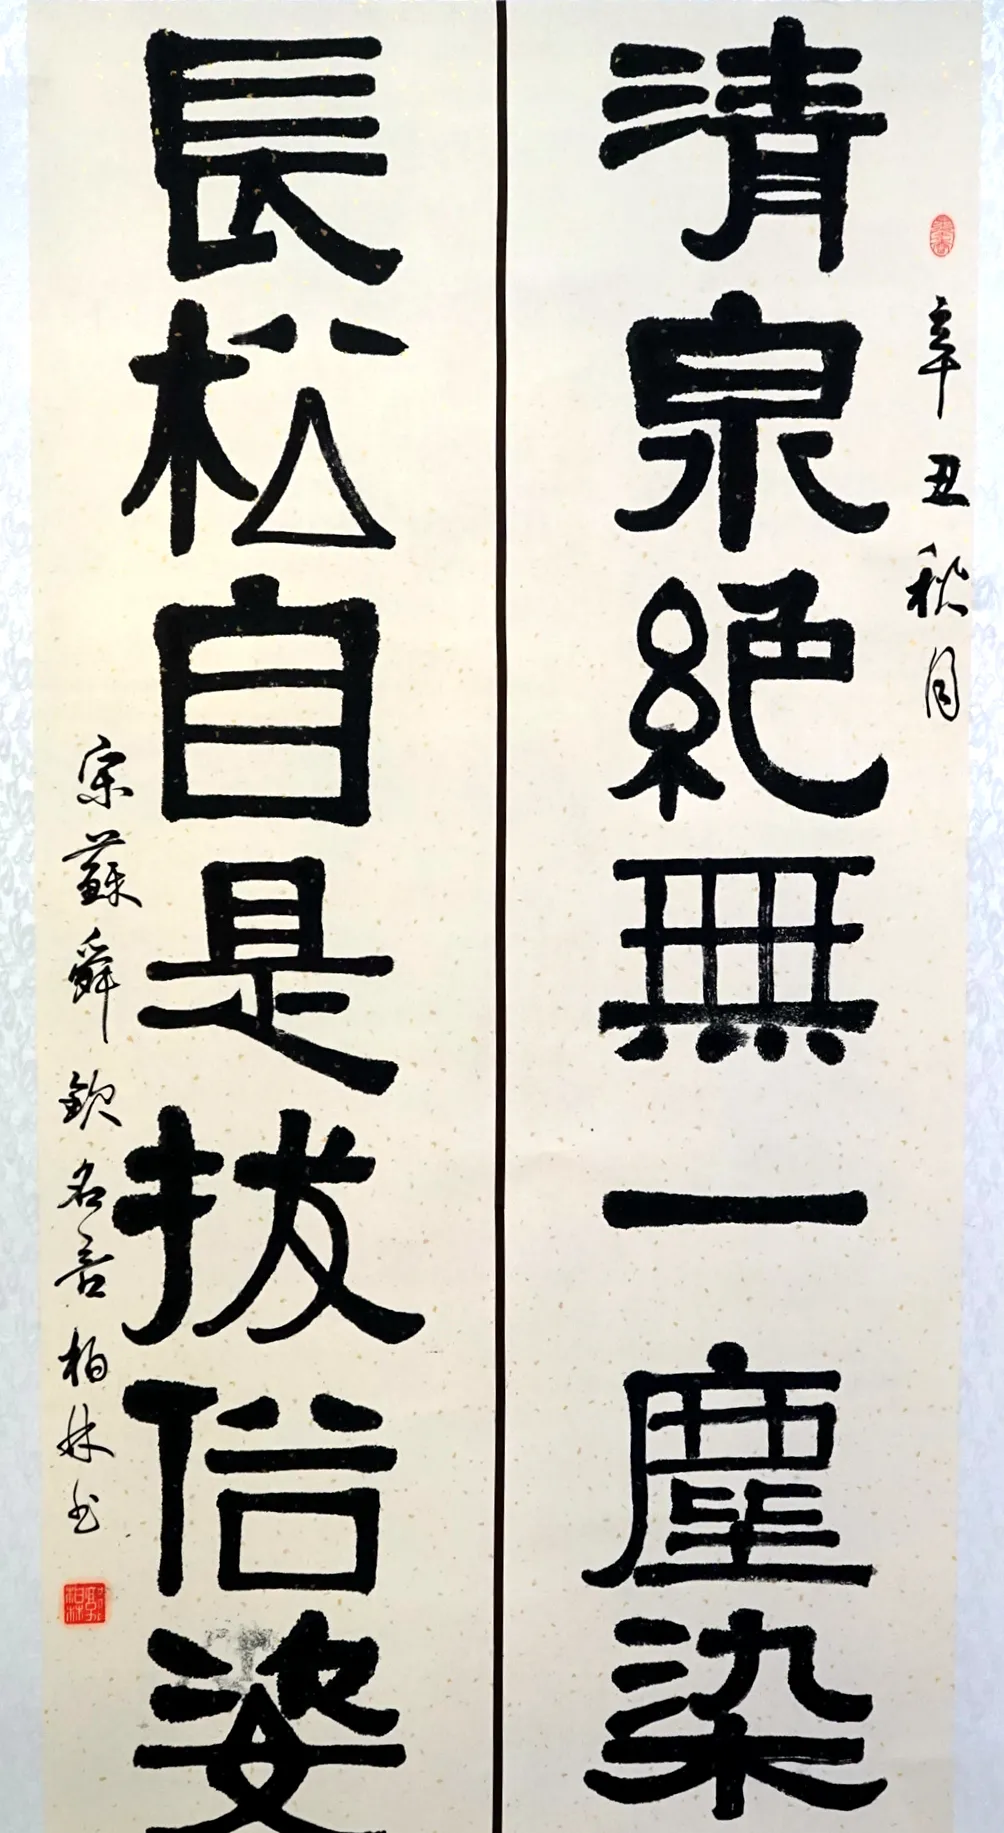 辛丑秋月
清泉絕無一塵染
長松自是拔俗姿
宋蘇舜欽名言柏林书
郭柏林